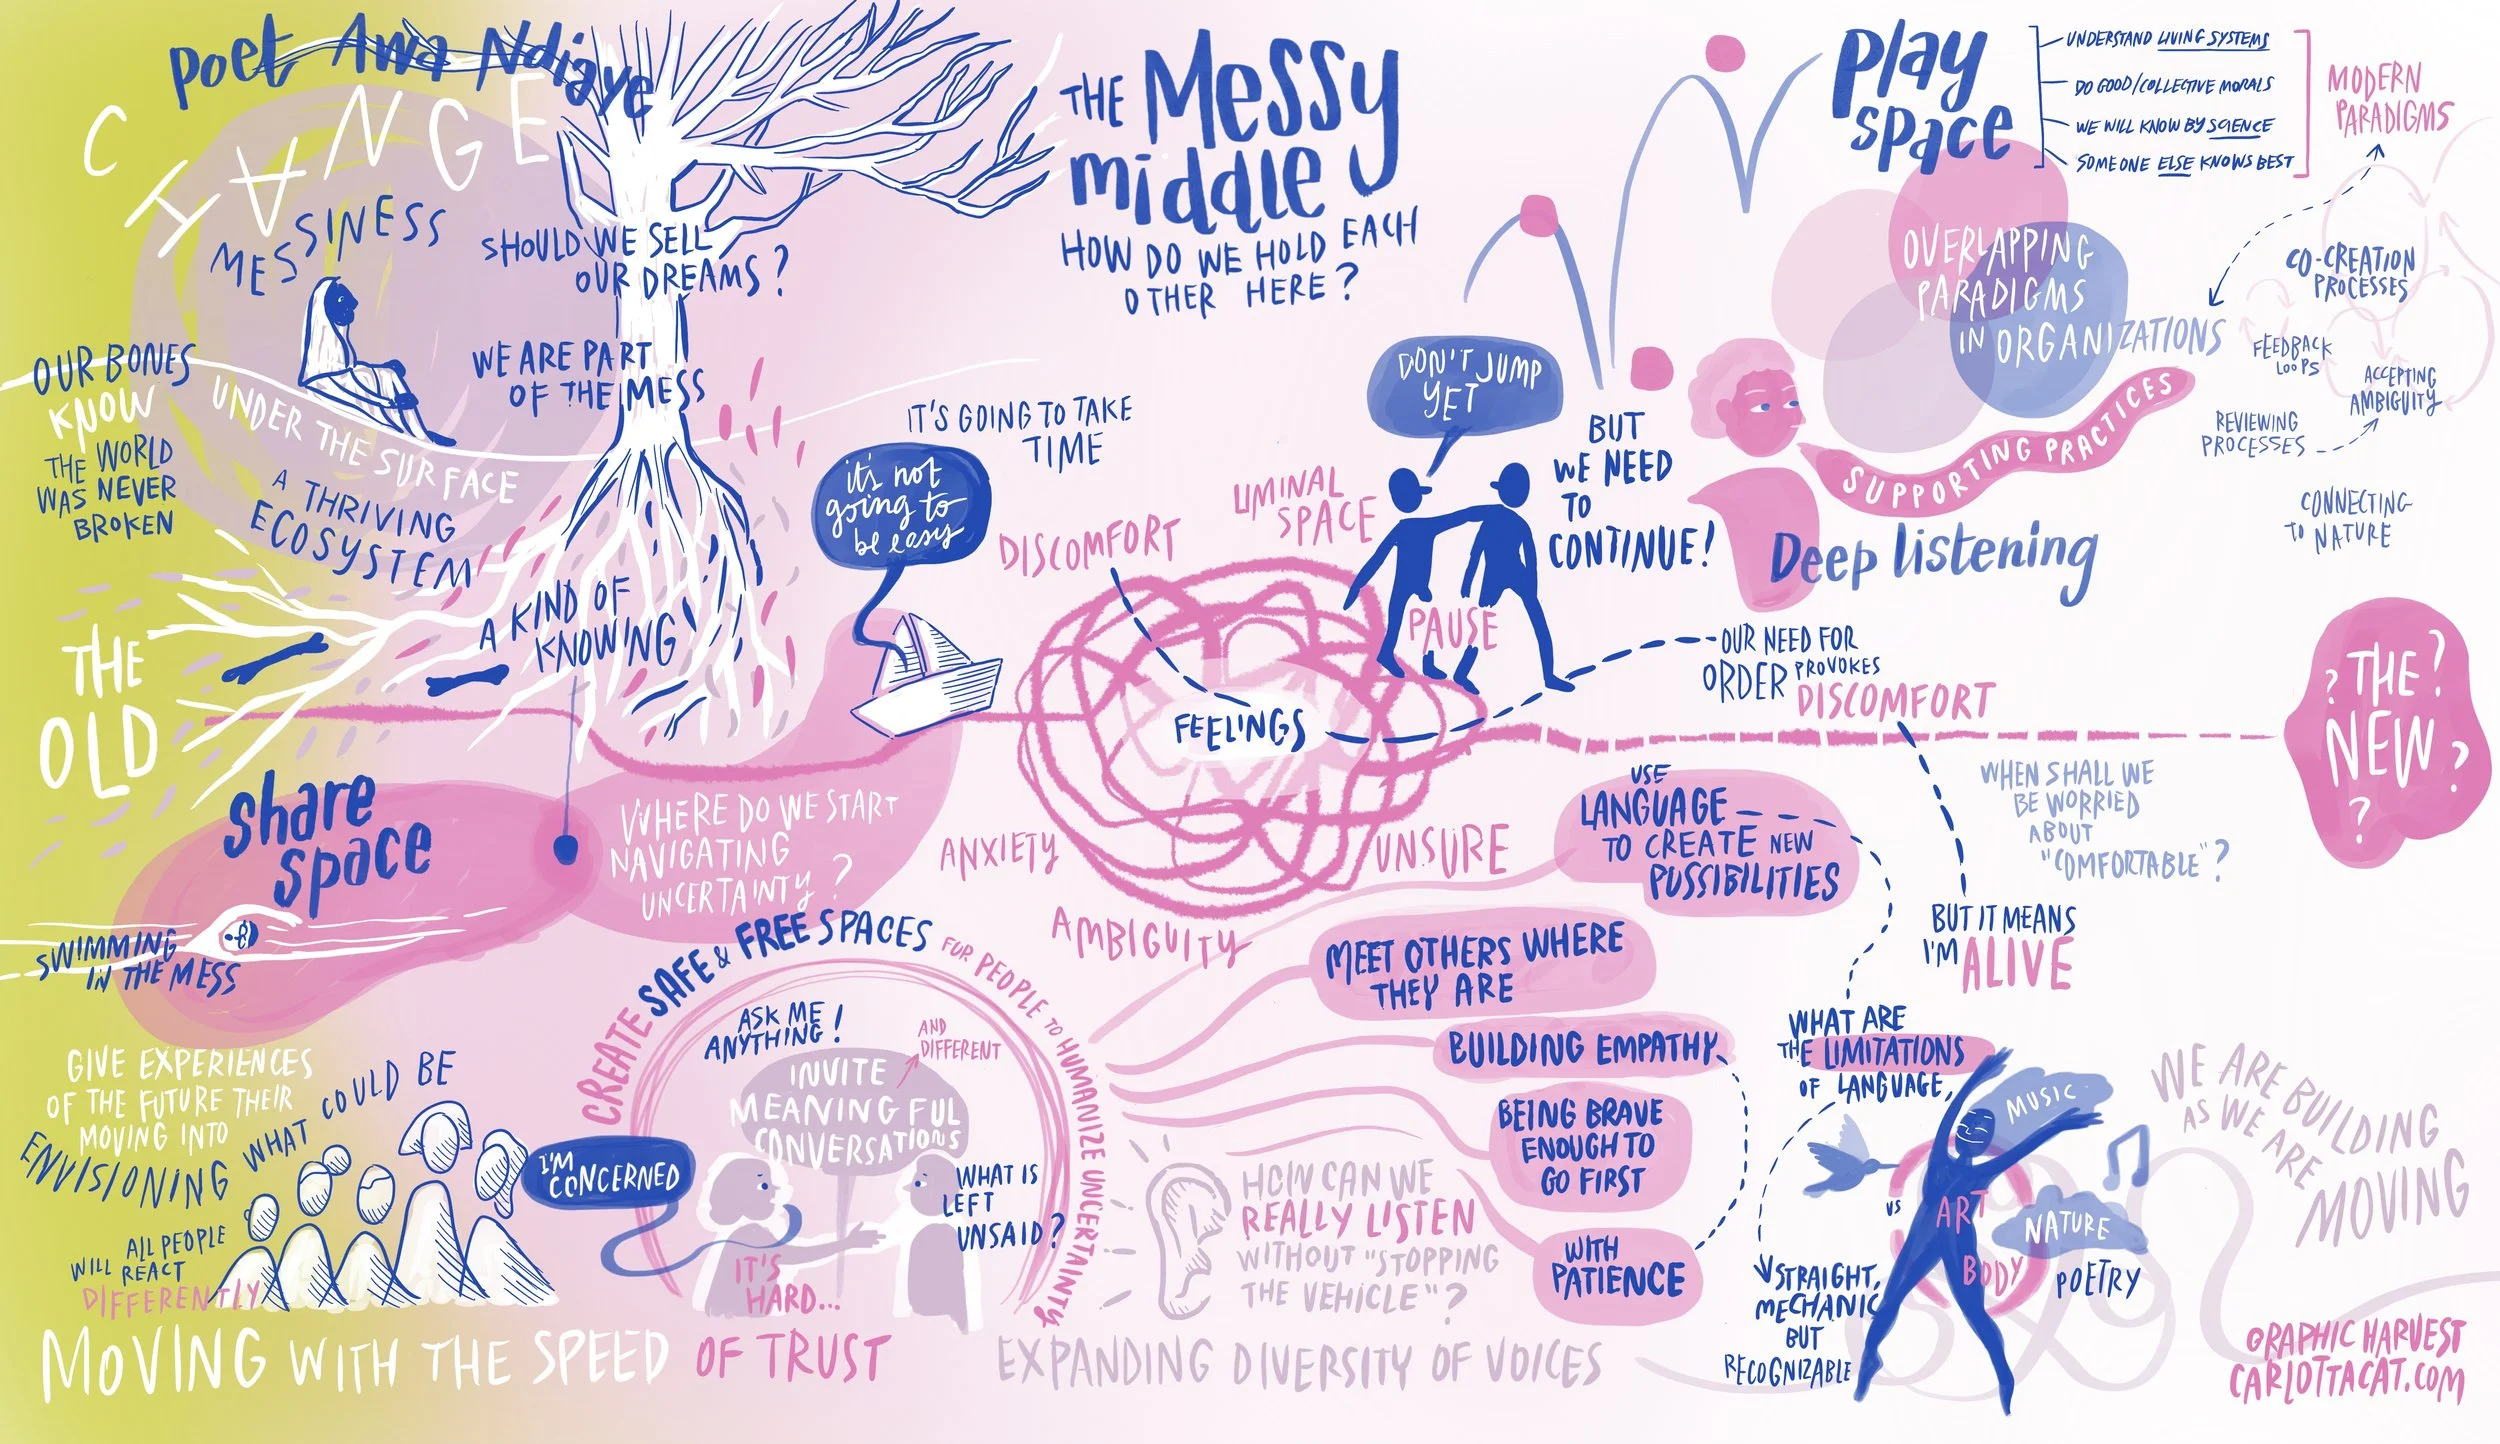 poet Awa Ndiaye
CHANGE
MESSINESS
SHOULD WE SELL
OUR DREAMS?
WE ARE PART
OF THE MESS
OUR BONES
KNOW
THE WORLD
WAS NEVER
BROKEN
UNDER THE SURFACE
A THRIVING
ECOSYSTEM
A KIND OF
KNOWING
THE
OLD
share
space
SWIMMING
IN THE MESS
WHERE DO WE START
NAVIGATING
UNCERTAINTY?
THE Messy
middle
HOW DO WE HOLD EACH
OTHER HERE?
IT'S GOING TO TAKE
TIME
it's not
going to
be easy
DISCOMFORT
LIMINAL
SPACE
DON'T JUMP
YET
BUT
WE NEED
TO
CONTINUE!
PAUSE
FEELINGS
ANXIETY
AMBIGUITY
UNSURE
OUR NEED FOR
ORDER PROVOKES
DISCOMFORT
play
space
UNDERSTAND LIVING SYSTEMS
DO GOOD/COLLECTIVE MORALS
WE WILL KNOW BY SCIENCE
SOMEONE ELSE KNOWS BEST
MODERN
PARADIGMS
OVERLAPPING
PARADIGMS
IN ORGANIZATIONS
CO-CREATION
PROCESSES
FEEDBACK
LOOPS
ACCEPTING
AMBIGUITY
REVIEWING
PROCESSES
CONNECTING
TO NATURE
SUPPORTING PRACTICES
Deep listening
? THE ?
NEW ?
?
WHEN SHALL WE
BE WORRIED
ABOUT
"COMFORTABLE"?
BUT IT MEANS
I'M ALIVE
USE
LANGUAGE
TO CREATE NEW
PUSSIBILITIES
MEET OTHERS WHERE
THEY ARE
BUILDING EMPATHY
BEING BRAVE
ENOUGH TO
GO FIRST
WITH
PATIENCE
WHAT ARE
THE LIMITATIONS
OF LANGUAGE,
STRAIGHT,
MECHANIC
BUT
RECOGNIZABLE
VS
ART
BODY
MUSIC
NATURE
POETRY
WE ARE BUILDING
AS WE ARE
MOVING
GIVE EXPERIENCES
OF THE FUTURE THEIR
MOVING INTO
ENVISIONING WHAT COULD BE
ALL PEOPLE
WILL REACT
DIFFERENTLY
CREATE SAFE & FREE SPACES FOR PEOPLE TO HUMANIZE UNCERTAINTY
ASK ME
ANYTHING!
AND
DIFFERENT
INVITE
MEANINGFUL
CONVERSATIONS
I'M
CONCERNED
WHAT IS
LEFT
UNSAID?
IT'S
HARD...
HOW CAN WE
REALLY LISTEN
WITHOUT "STOPPING
THE VEHICLE"?
MOVING WITH THE SPEED OF TRUST
EXPANDING DIVERSITY OF VOICES
GRAPHIC HARVEST
CARLOTTACAT.COM